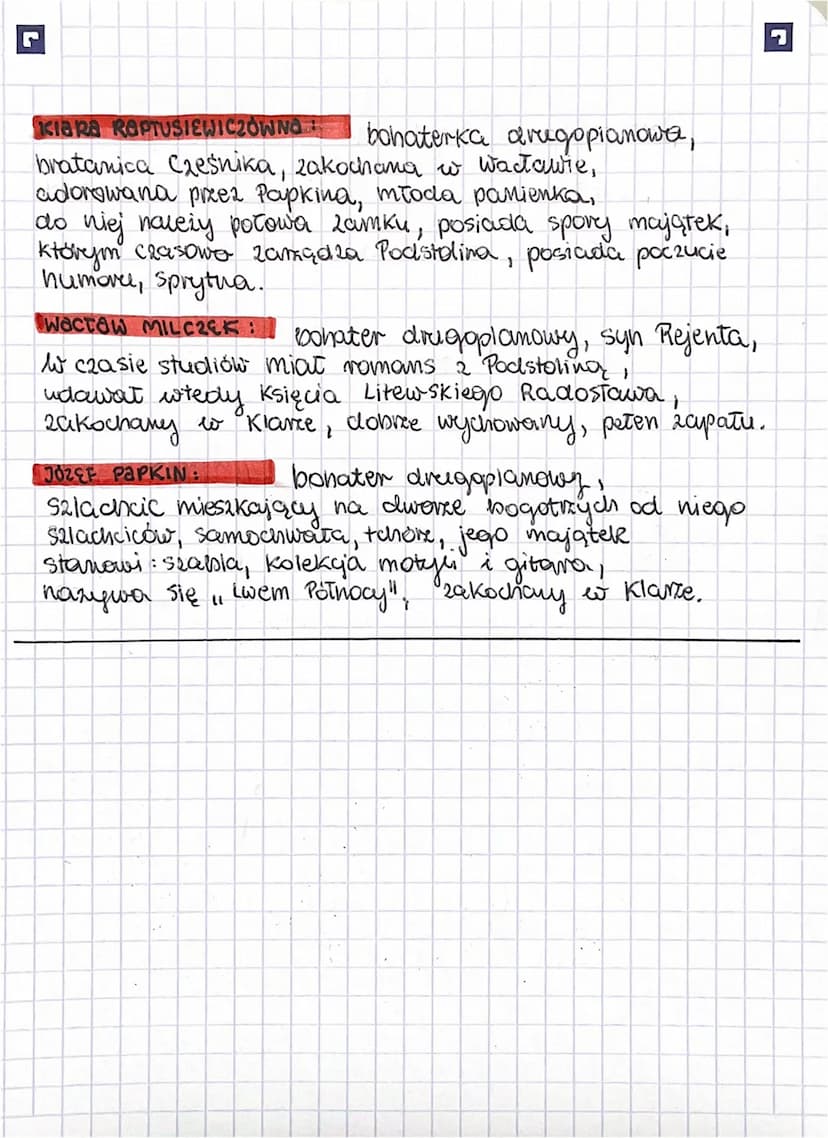 KLARA RAPTUSIEWICZÓWNA: bohaterka drugoplanowa,
bratanica Cześnika, zakochana w Wacławie,
adorowana przez Papkina, młoda panienka,
do niej należy połowa zamku, posiada spory majątek,
którym czasowo zarządza Podstolina, posiada poczucie
humoru, sprytna.
WACŁAW MILCZEK: bohater drugoplanowy, syn Rejenta,
w czasie studiów miał romans z Podstoliną,
udawał wtedy Księcia Litewskiego Radosława,
zakochany w Klarze, dobrze wychowany, pełen zapału.
JÓZEF PAPKIN: bohater drugoplanowy,
szlachcic mieszkający na dworze bogatrzych od niego
szlachciców, samochwała, tchórz, jego majątek
stanowi: szabla, kolekcja motyli i gitara,
nazywa się „Lwem Północy", zakochany w Klarze.